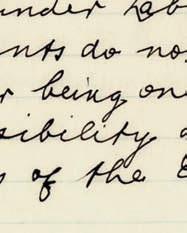 under Lab
ents do no
r being one
sibility a
s of the E